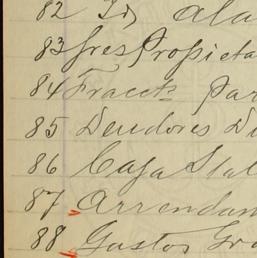 82 Id ala
83 Jres Propieta
84 Fracck par
85 Deudores Di
86 Caja Stal
87 Arrendam
88 Gastos Gra